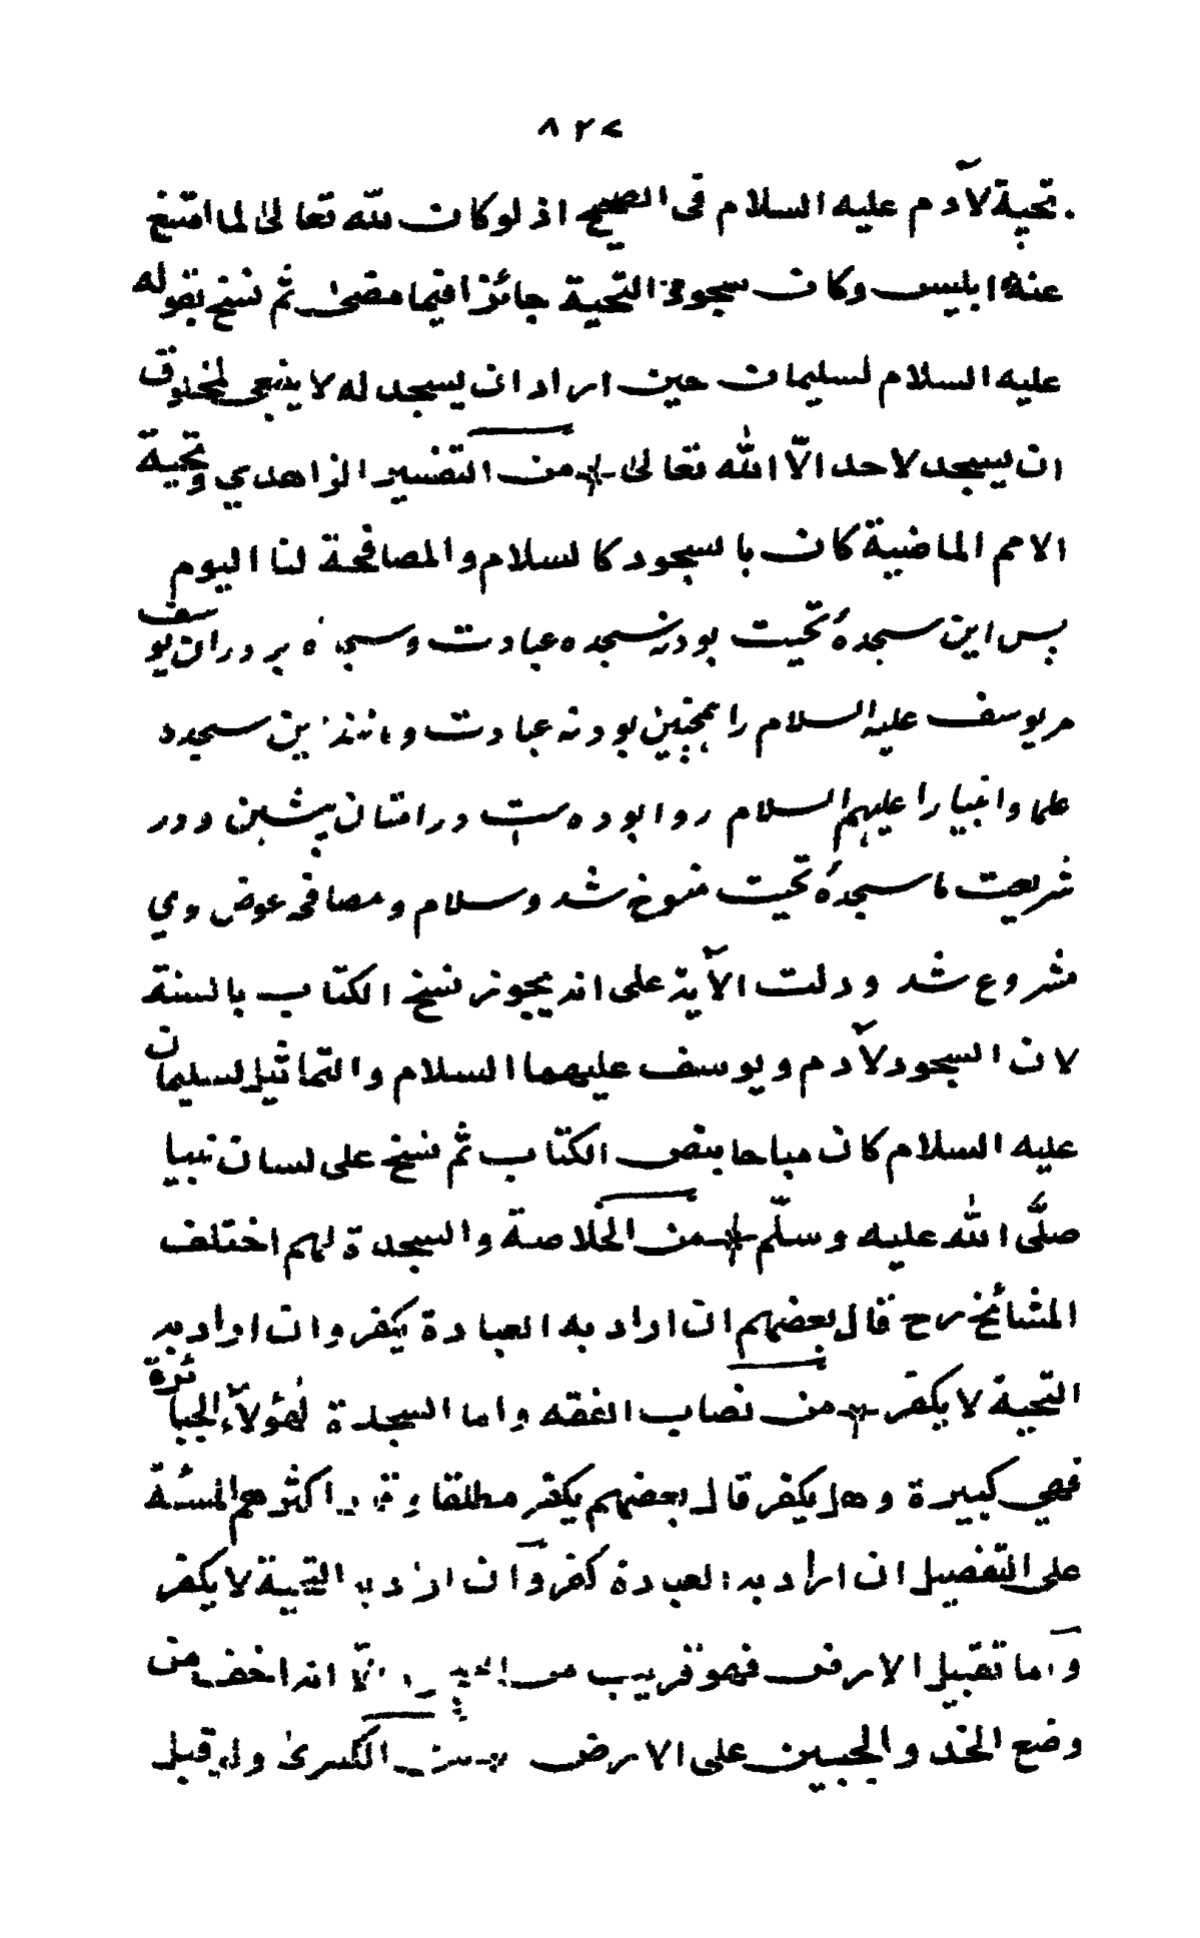 ٨٢٧
تحية لآدم عليه السلام فى الصحيح اذ لو كان لله تعالىٰ لما امتنع
عنه ابليس وكان سجود التحية جائزا فيما مضىٰ ثم نسخ بقوله
عليه السلام لسليمان حين اراد ان يسجد له لا ينبغى لمخلوق
ان يسجد لاحد الّا الله تعالىٰ من التفسير الزاهدي وتحية
الامم الماضية كان بالسجود كالسلام والمصافحة لنا اليوم
پس اين سجدهٔ تحيت بود نه سجده عبادت وسجدهٔ برادران يوسف
مر يوسف عليه السلام را همچنين بود نه عبادت و مانند اين سجده
علما وانبيا را عليهم السلام روا بوده است در امتان پيشين و در
شريعت ما سجدهٔ تحيت منسوخ شد وسلام ومصافحه عوض وي
مشروع شد ودلت الآية على انه يجوز نسخ الكتاب بالسنة
لان السجود لآدم ويوسف عليهما السلام والتماثيل لسليمان
عليه السلام كان مباحا بنص الكتاب ثم نسخ على لسان نبينا
صلَّى الله عليه وسلّم من الخلاصة والسجدة لهم اختلف
المشائخ رح قال بعضهم ان اراد به العبادة يكفر وان اراد به
التحية لا يكفر من نصاب الفقه واما السجدة لهؤلآء الجبائرة
فهي كبيرة وهل يكفر قال بعضهم يكفر مطلقا وقال اكثرهم المسئلة
على التفصيل ان اراد به العبادة كفر وان اراد به التحية لا يكفر
واما تقبيل الارض فهو قريب من الا انه اخف من
وضع الخد والجبين على الارض من الكسرىٰ ولو قبل